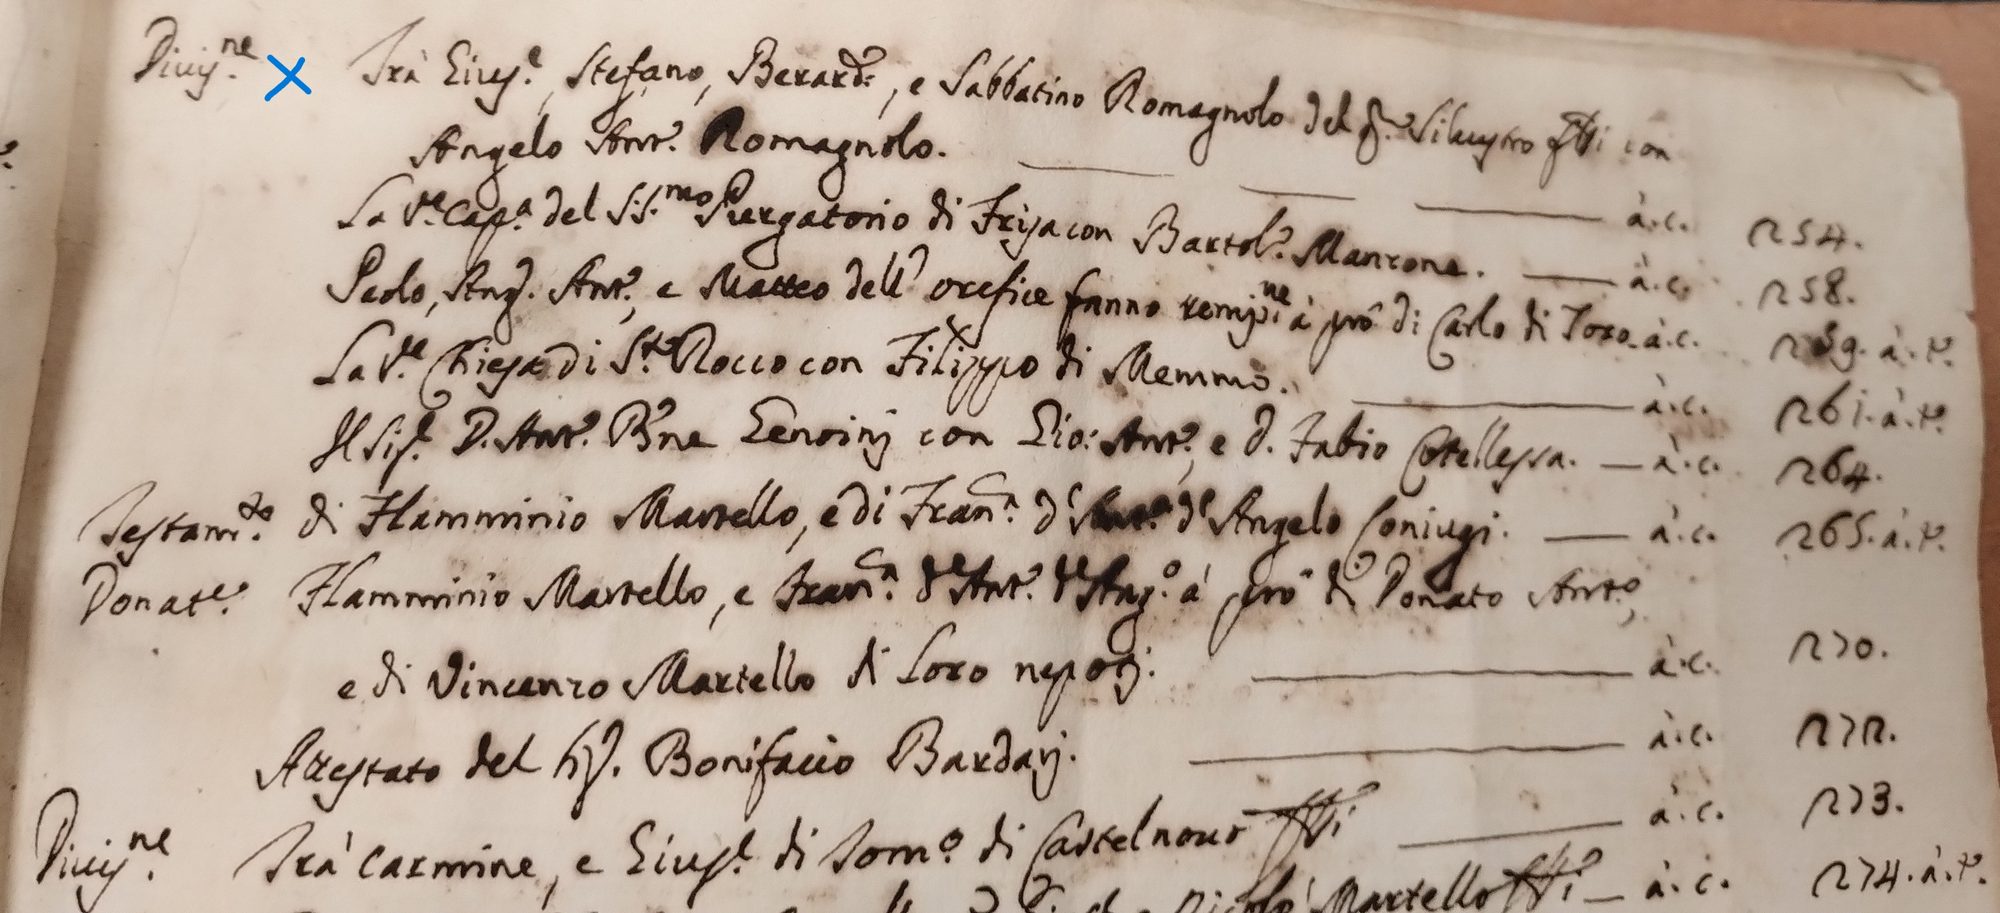 Divis.ne Trà Gius.e, Stefano, Berard.o, e Sabbatino Romagnolo del q.m Silvestro ffri con
Angelo Ant.o Romagnolo. à.c. 254.
La V.e Cap.a del S.S.mo Purgatorio di Frisa con Bartol.o Manzone. à.c. 258.
Paolo, Ang. Ant.o, e Matteo dell'orefice fanno remis.ne à prò di Carlo di Toro. à.c. 259. à.t.o
La V.e Chiesa di S.to Rocco con Filippo di Memmo. à.c. 261. à.t.o
Il Sig.e D. Ant.o B.ne con Gio: Ant.o, e d. Fabio Cotellessa. à.c. 264.
Testam.to di Flamminio Martello, e di Fran.ca d'Ant.o d'Angelo Coniugi. à.c. 265. à.t.o
Donat.e Flamminio Martello, e Fran.ca d'Ant.o d'Ang.o à prò di Donato Ant.o,
e di Vincenzo Martello di loro nepoti. à.c. 270.
Attestato del Bonifacio Bardasj. à.c. 272.
Divis.ne Trà Carmine, e Gius.e di Tom.o di Castelnovo ffri à.c. 273.
Nicolò Martello ffri à.c. 274. à.t.o